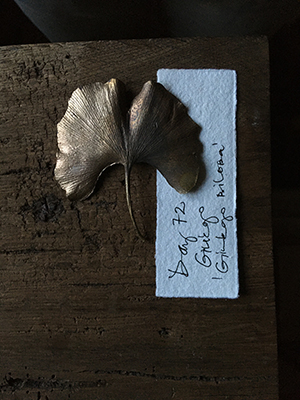 Day 72
Ginkgo
'Ginkgo biloba'